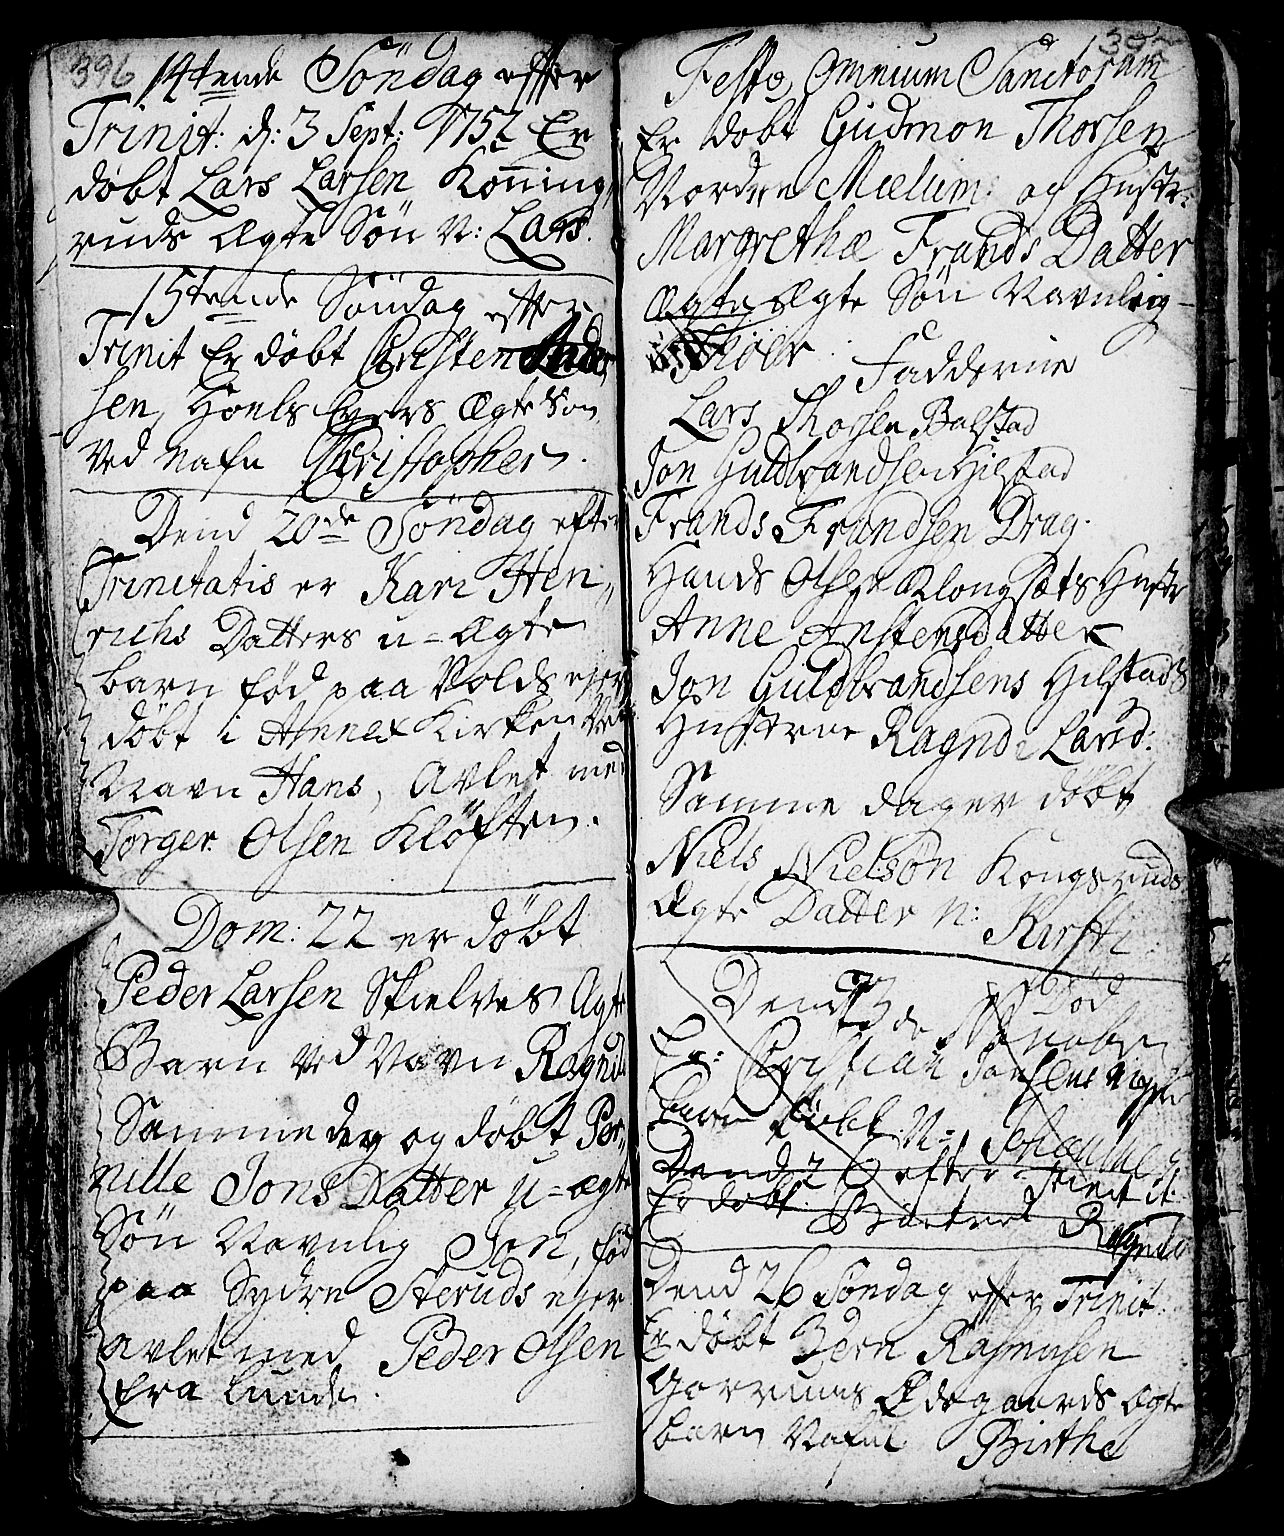 396
14tende Söndag effter
Trinit: d: 3 Sept: 1752 Er
döbt Lars Larsen Konning,
ruds Ægte Sön N: Lars.
15tende Söndag effter
Trinit Er döbt Christen Ander
sen, Hoels Eyers Ægte Sön,
Ved Nafn Christopher.
Dend 20de Söndag efter
Trinitatis er Kari Hen,,
richs Datters u=ægte
barn fød paa Volds eyer
döbt i Annex Kirken Ved
Navn Hans, Avlet med
Torger Olsen Klöften.
Dom: 22 er döbt
Peder Larsen Skielves Ægte
Barn ved Navn Ragnd
Samme dag og döbt Per,,
nille Jons Datter u=ægte
Sön Navnlig Jon, fød
paa Sydre Steruds eyer
avlet med Peder Olsen
fra Lunde.
Festo Omnium Sanctorum
Er döbt Gudmon Thorsen
Nordre Mælum og Hustr:
Margrethæ Frands Datter
Ægte Ægte Sön Navnlig
Thoer
Fadderne
Lars Thorsen Balstad
Jon Guldbrandsen Hilstad
Frands Frandsen Drag.
Hands Olsen Klongsæts Hustr
Anne Anstensdatter
Jon Guldbrandsens Hilstads
Hustrue Ragnd: Larsd:
Samme dag er döbt
Niels Nielsön Kongsruds
Ægte Datter N: Kirsti
Dend 23 de
Er: Christian Jonsens
barn döbt N: Johanne
Dend 26 efter Trinit
Er döbt Ragnd
Dend 26 Söndag effter Trinit.
Er döbt Iern Rasmusen
Gorrums Ødegaards Ægte
barn Nafnl Birthe